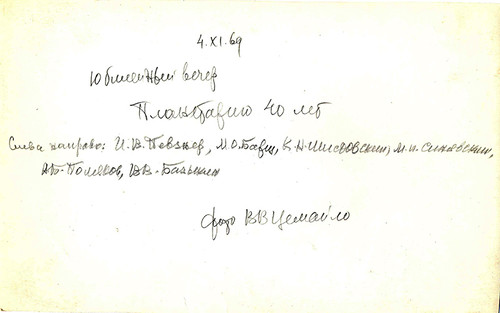 4.XI.69
Юбилейный вечер
Планетарию 40 лет
Слева направо: И.В. Певзнер, М.О. Барщ, К.Н. Шистовский, М.И. Синявский,
А.Б. Поляков, В.В. Базыкин
фото В В Цемайло